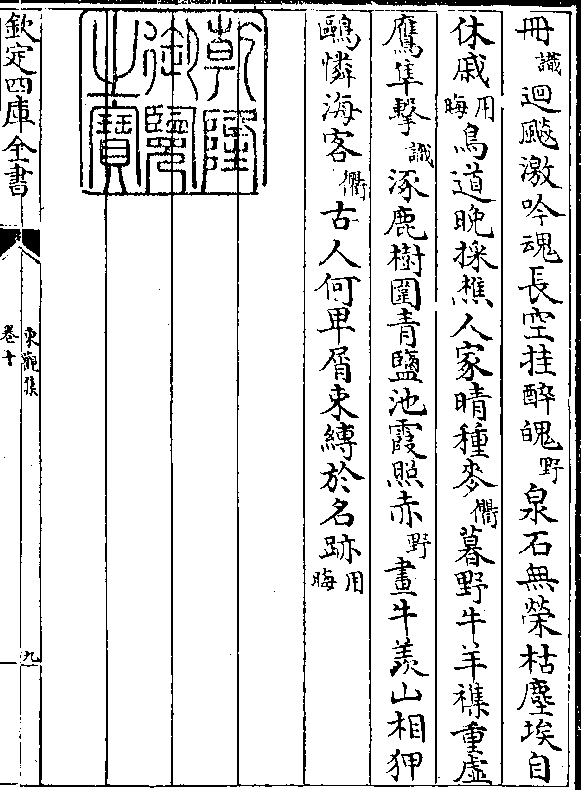 冊識迴飈激吟魂長空挂醉魄野泉石無榮枯塵埃自
休戚用晦鳥道晩採樵人家晴種麥衢暮野牛羊襍重虛
鷹隼擊識涿鹿樹圍青鹽池霞照赤野畫牛羨山相狎
鷗憐海客衢古人何卑屑束縛於名跡用晦
乾隆御覽之寶
欽定四庫全書
東觀集
卷十
九